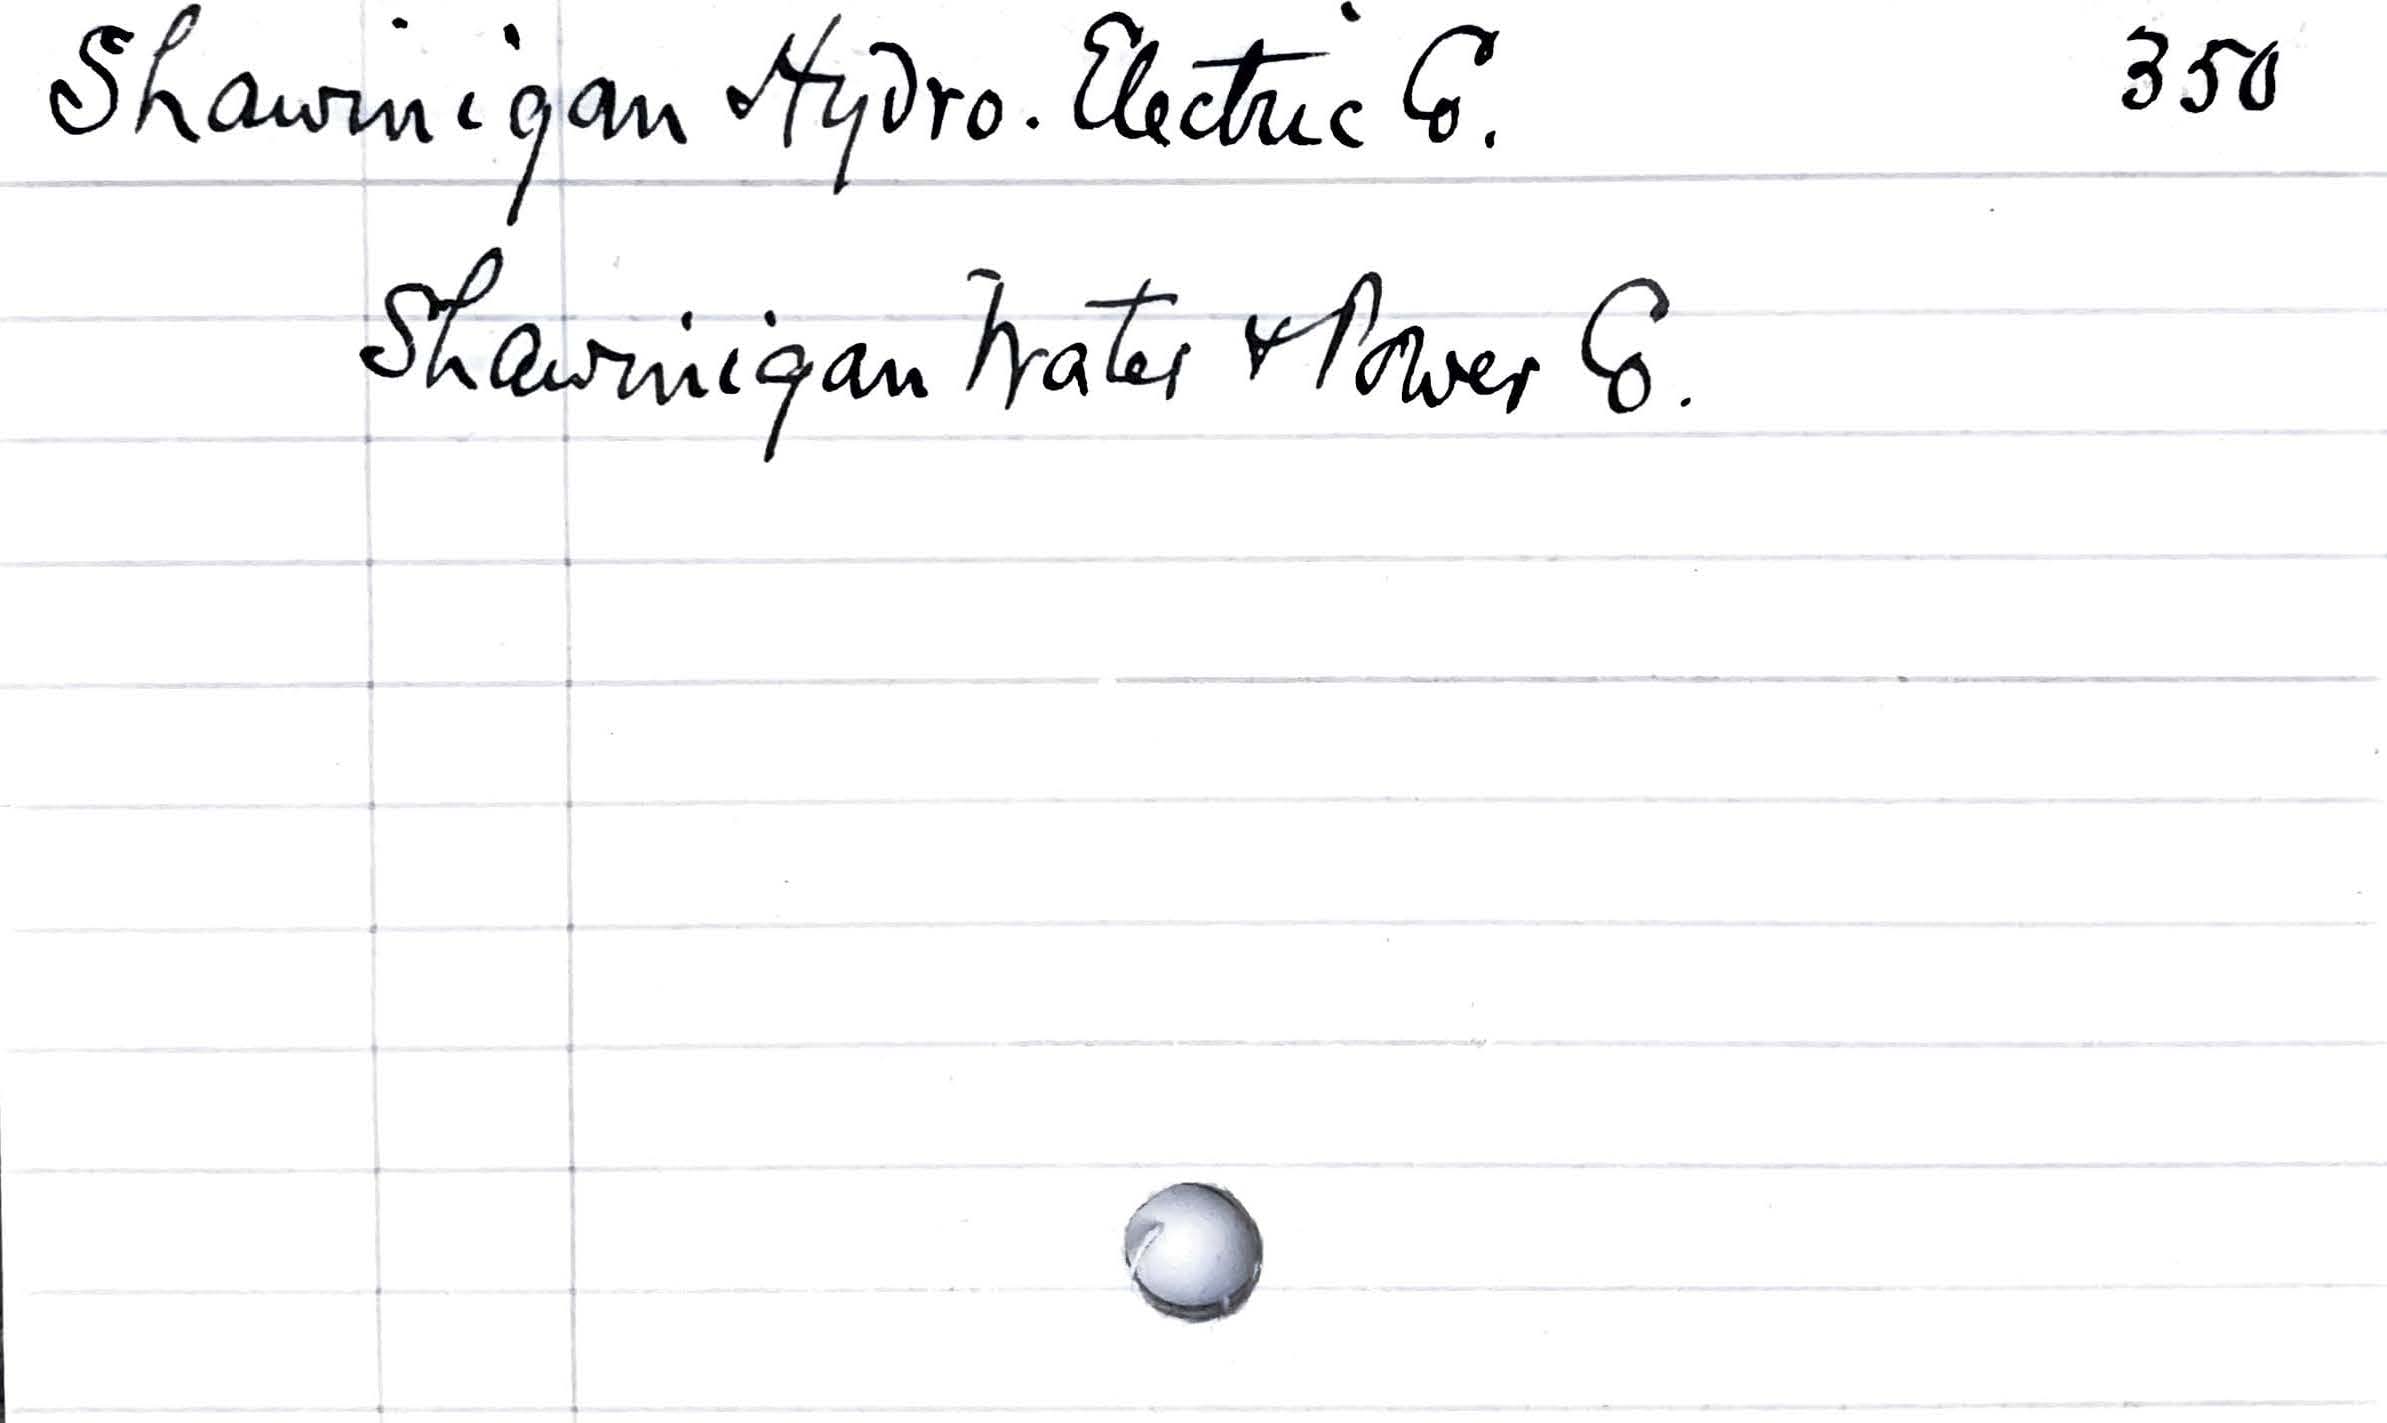 Shawinigan Hydro. Electric Co. 350
Shawinigan Water & Power Co.